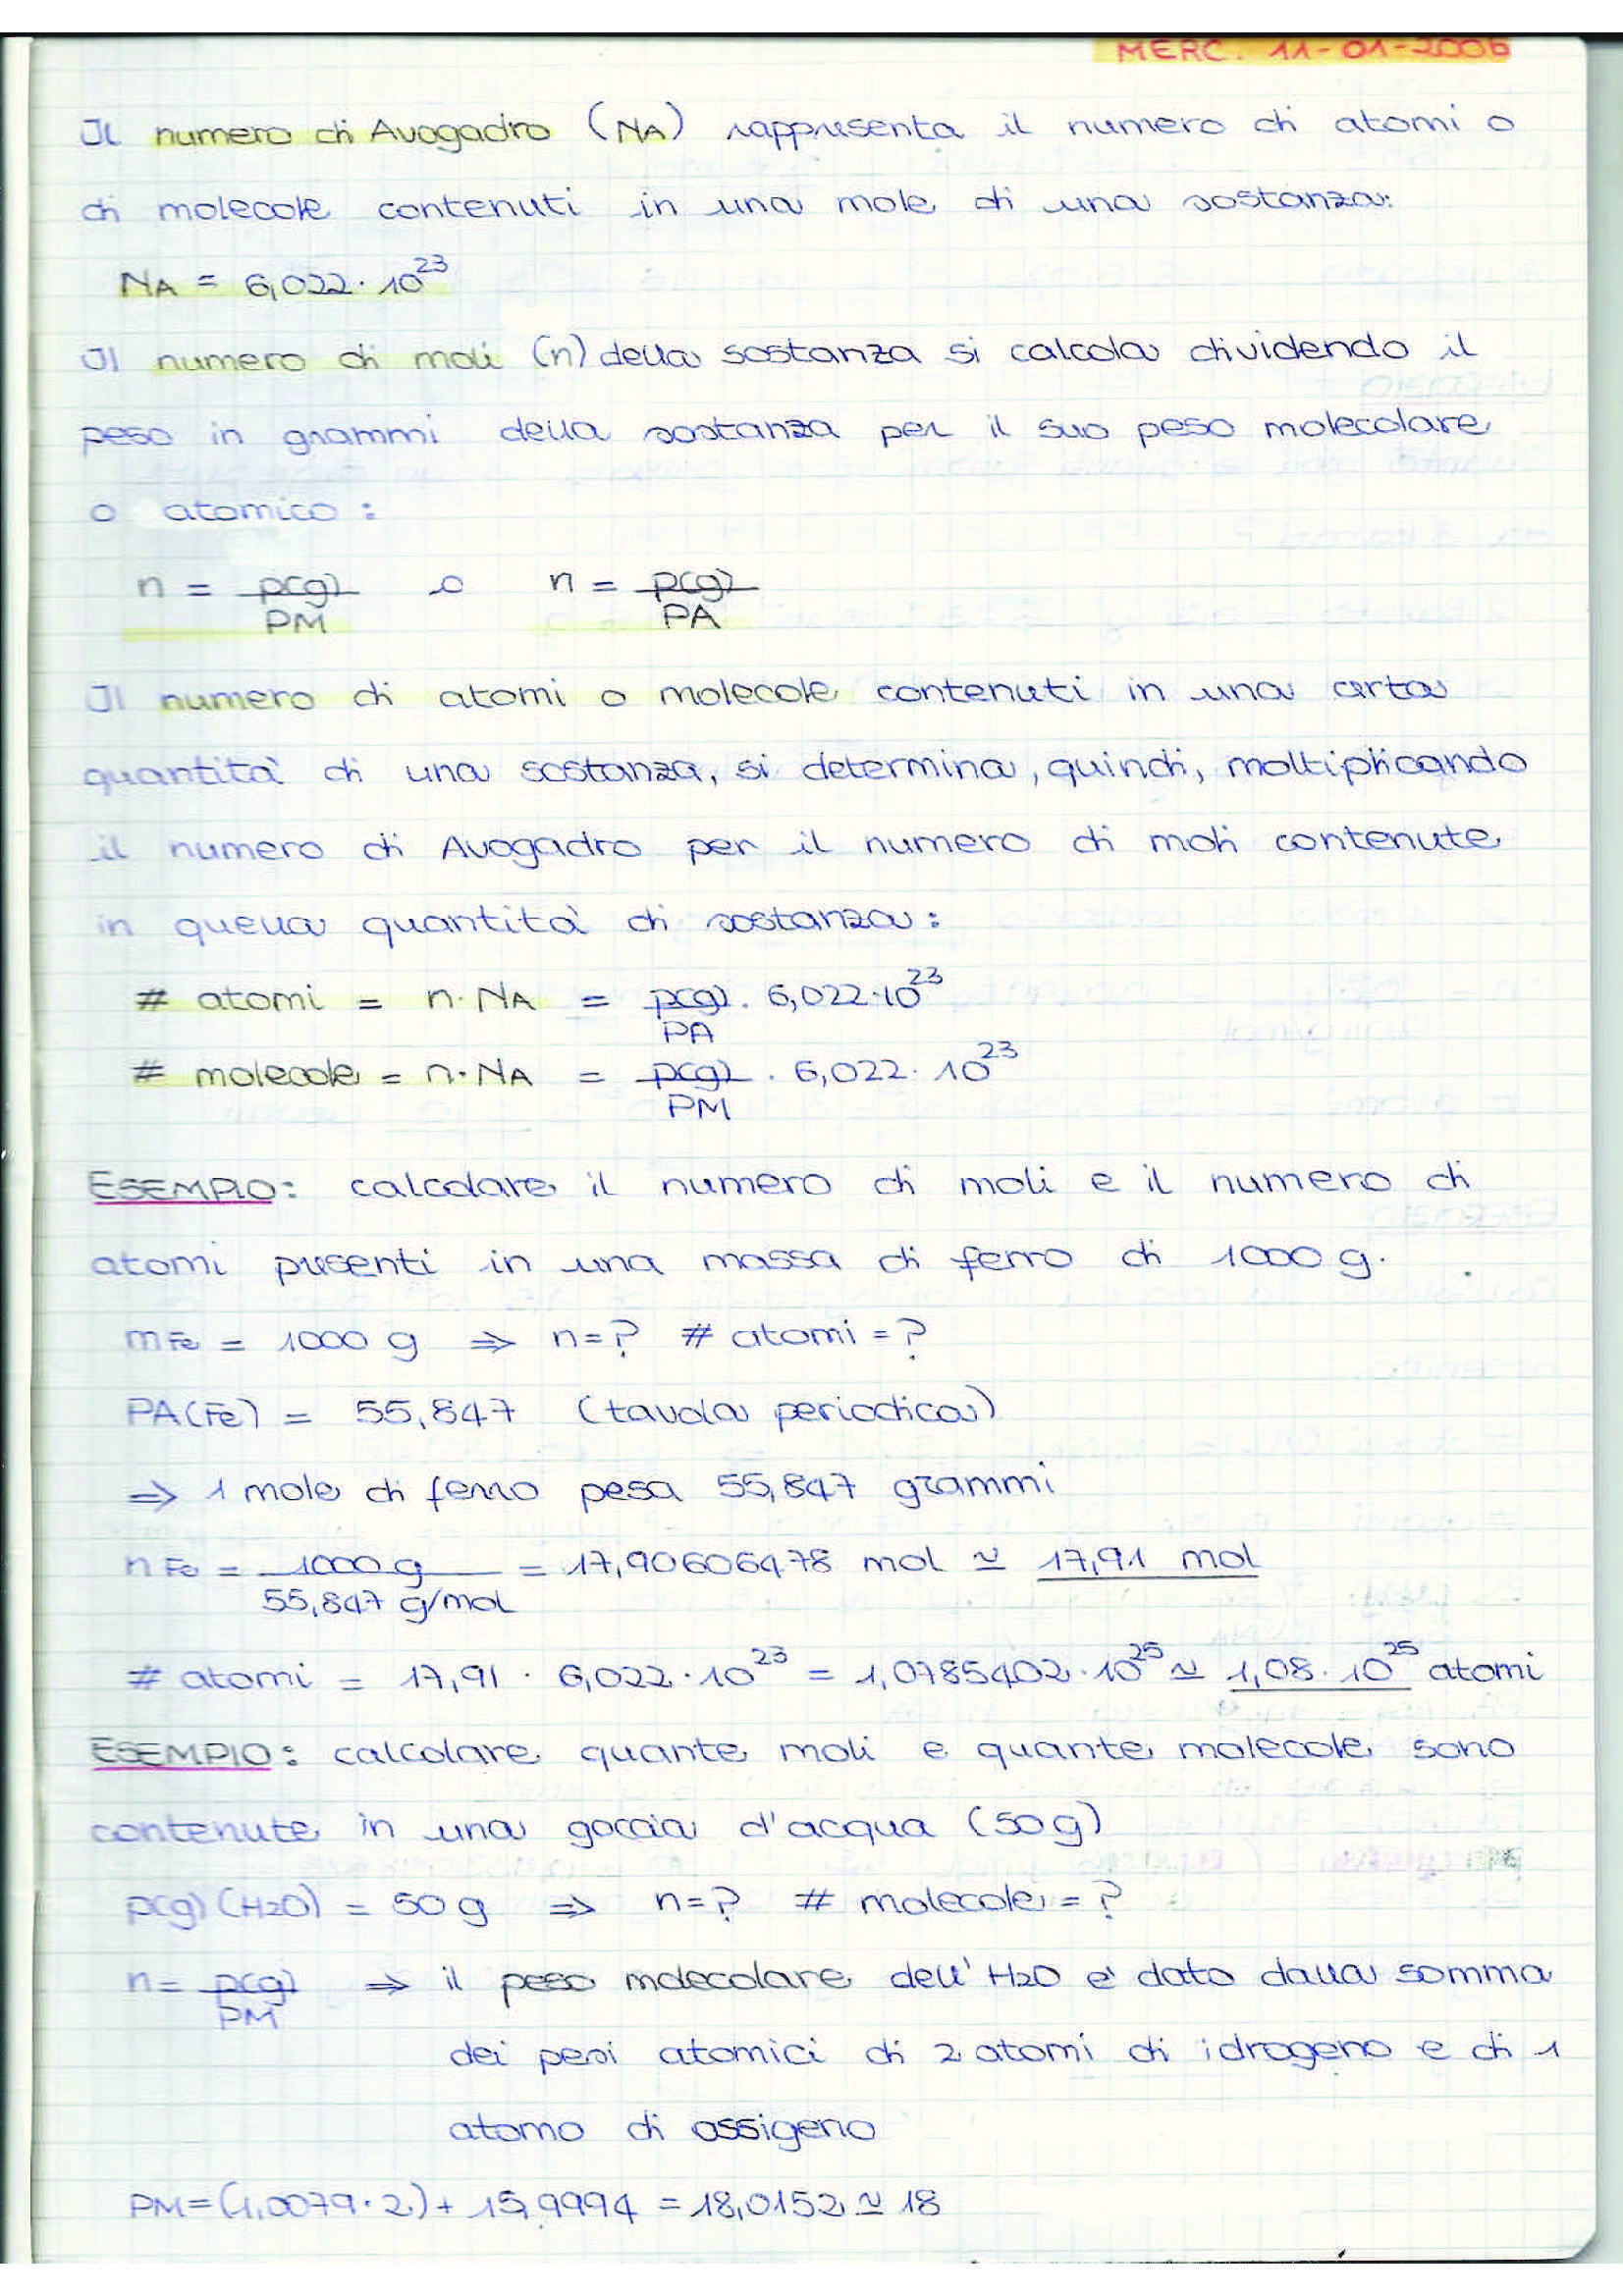 MERC. 11-01-2006
Il numero di Avogadro (NA) rappresenta il numero di atomi o
di molecole contenuti in una mole di una sostanza:
NA = 6,022·10²³
Il numero di moli (n) della sostanza si calcola dividendo il
peso in grammi della sostanza per il suo peso molecolare
o atomico:
n = p(g)/PM o n = p(g)/PA
Il numero di atomi o molecole contenuti in una certa
quantità di una sostanza, si determina, quindi, moltiplicando
il numero di Avogadro per il numero di moli contenute
in quella quantità di sostanza:
# atomi = n·NA = p(g)/PA · 6,022·10²³
# molecole = n·NA = p(g)/PM · 6,022·10²³
ESEMPIO: calcolare il numero di moli e il numero di
atomi presenti in una massa di ferro di 1000 g.
mFe = 1000 g ⇒ n=? # atomi = ?
PA(Fe) = 55,847 (tavola periodica)
⇒ 1 mole di ferro pesa 55,847 grammi
nFe = 1000 g / 55,847 g/mol = 17,90606478 mol ≃ 17,91 mol
# atomi = 17,91 · 6,022·10²³ = 1,0785402·10²⁵ ≃ 1,08·10²⁵ atomi
ESEMPIO: calcolare quante moli e quante molecole sono
contenute in una goccia d'acqua (50g)
p(g)(H2O) = 50 g ⇒ n=? # molecole = ?
n = p(g)/PM ⇒ il peso molecolare dell'H2O e' dato dalla somma
dei pesi atomici di 2 atomi di idrogeno e di 1
atomo di ossigeno
PM=(1,0079·2)+15,9994 = 18,0152 ≃ 18